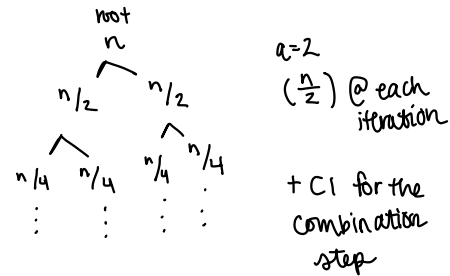 root
n
n/2 n/2
n/4 n/4 n/4 n/4
a=2
(n/2) @ each
iteration
+ C1 for the
combination
step